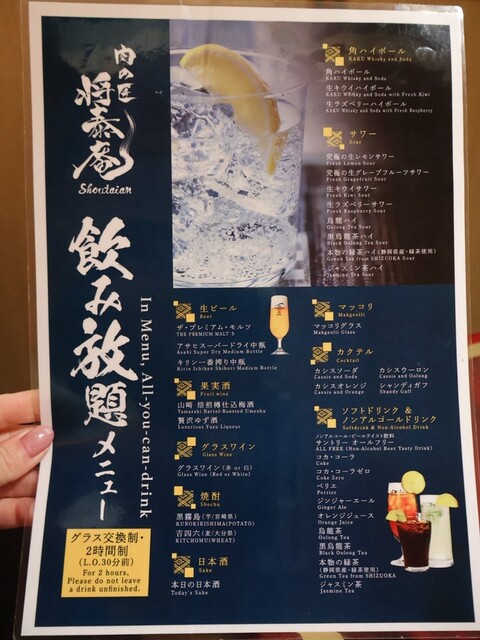 肉の匠
将泰庵
Shoutaian
飲み放題メニュー
In Menu, All-you-can-drink
グラス交換制・
2時間制
(L.O.30分前)
For 2 hours,
Please do not leave
a drink unfinished.
角ハイボール
KAKU Whisky and Soda
角ハイボール
KAKU Whisky and Soda
生キウイハイボール
KAKU Whisky and Soda with Fresh Kiwi
生ラズベリーハイボール
KAKU Whisky and Soda with Fresh Raspberry
サワー
Sour
究極の生レモンサワー
Fresh Lemon Sour
究極の生グレープフルーツサワー
Fresh Grapefruit Sour
生キウイサワー
Fresh Kiwi Sour
生ラズベリーサワー
Fresh Raspberry Sour
烏龍ハイ
Oolong Tea Sour
黒烏龍茶ハイ
Black Oolong Tea Sour
本物の緑茶ハイ(静岡県産・緑茶使用)
Green Tea from SHIZUOKA Sour
ジャスミン茶ハイ
Jasmine Tea Sour
生ビール
Beer
ザ・プレミアム・モルツ
THE PREMIUM MALT'S
アサヒスーパードライ中瓶
Asahi Super Dry Medium Bottle
キリン一番搾り中瓶
Kirin Ichiban Shibori Medium Bottle
果実酒
Fruit wine
山崎 焙煎樽仕込梅酒
Yamazaki Barrel-Roasted Umeshu
贅沢ゆず酒
Luxurious Yuzu Liqueur
グラスワイン
Glass Wine
グラスワイン(赤 or 白)
Glass Wine (Red or White)
焼酎
Shochu
黒霧島(芋/宮崎県)
KUROKIRISHIMA(POTATO)
吉四六(麦/大分県)
KITCHOMU(WHEAT)
日本酒
Sake
本日の日本酒
Today's Sake
マッコリ
Makgeolli
マッコリグラス
Makgeolli Glass
カクテル
Cocktail
カシスソーダ
Cassis and Soda
カシスウーロン
Cassis and Oolong
カシスオレンジ
Cassis and Orange
シャンディガフ
Shandy Gaff
ソフトドリンク &
ノンアルコールドリンク
Softdrink & Non-Alcohol Drink
ノンアルコール・ビールテイスト飲料
サントリー オールフリー
ALL FREE (Non-Alcohol Beer Tasty Drink)
コカ・コーラ
Coke
コカ・コーラゼロ
Coke Zero
ペリエ
Perrier
ジンジャーエール
Ginger Ale
オレンジジュース
Orange Juice
烏龍茶
Oolong Tea
黒烏龍茶
Black Oolong Tea
本物の緑茶
(静岡県産・緑茶使用)
Green Tea from SHIZUOKA
ジャスミン茶
Jasmine Tea